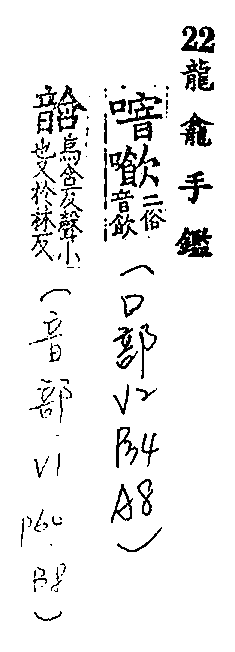 22 龍龕手鑑
二俗音飲 (口部 V2 P34 A8)
烏含反聲小也又於林反 (音部 V1 P60. B8)